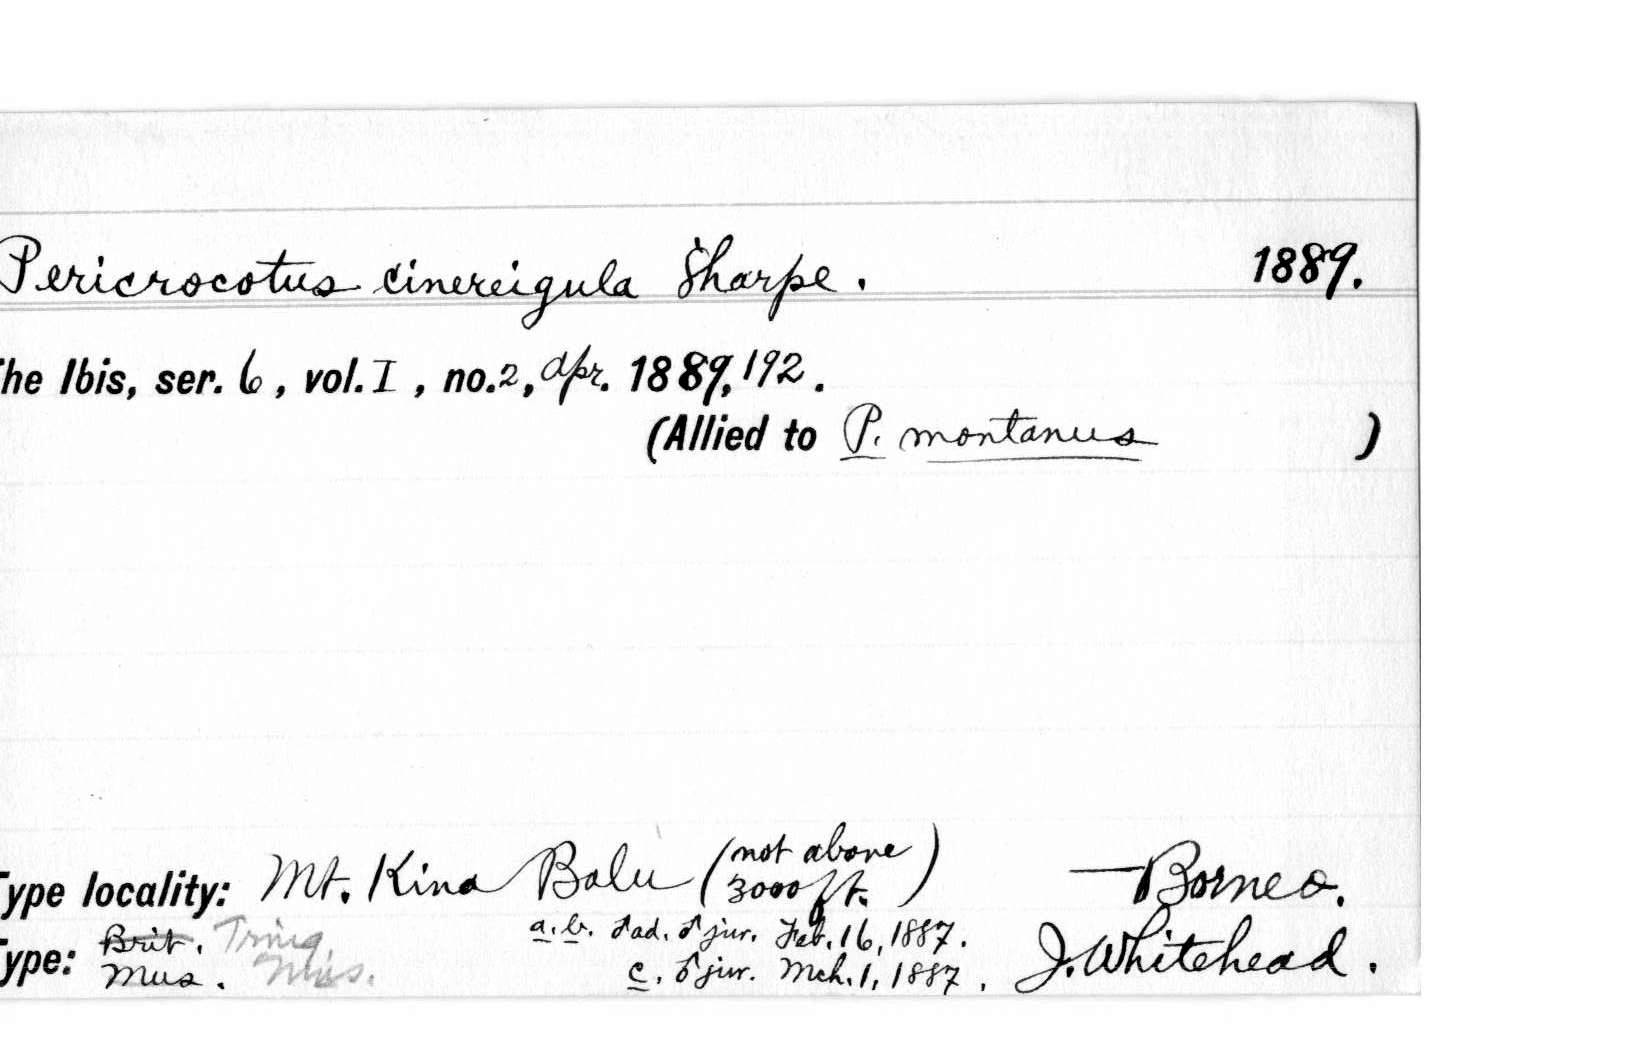 Pericrocotus cinereigula Sharpe. 1889.
The Ibis, ser. 6, vol. I, no. 2, Apr. 1889, 192.
(Allied to P. montanus )
Type locality: Mt. Kina Balu (not above 3000 ft.) —Borneo.
Type: Brit. Mus. Tring Mus. a.b. ♂ ad. ♂ juv. Feb. 16, 1887.
c. ♂ juv. Mch. 1, 1887. J. Whitehead.